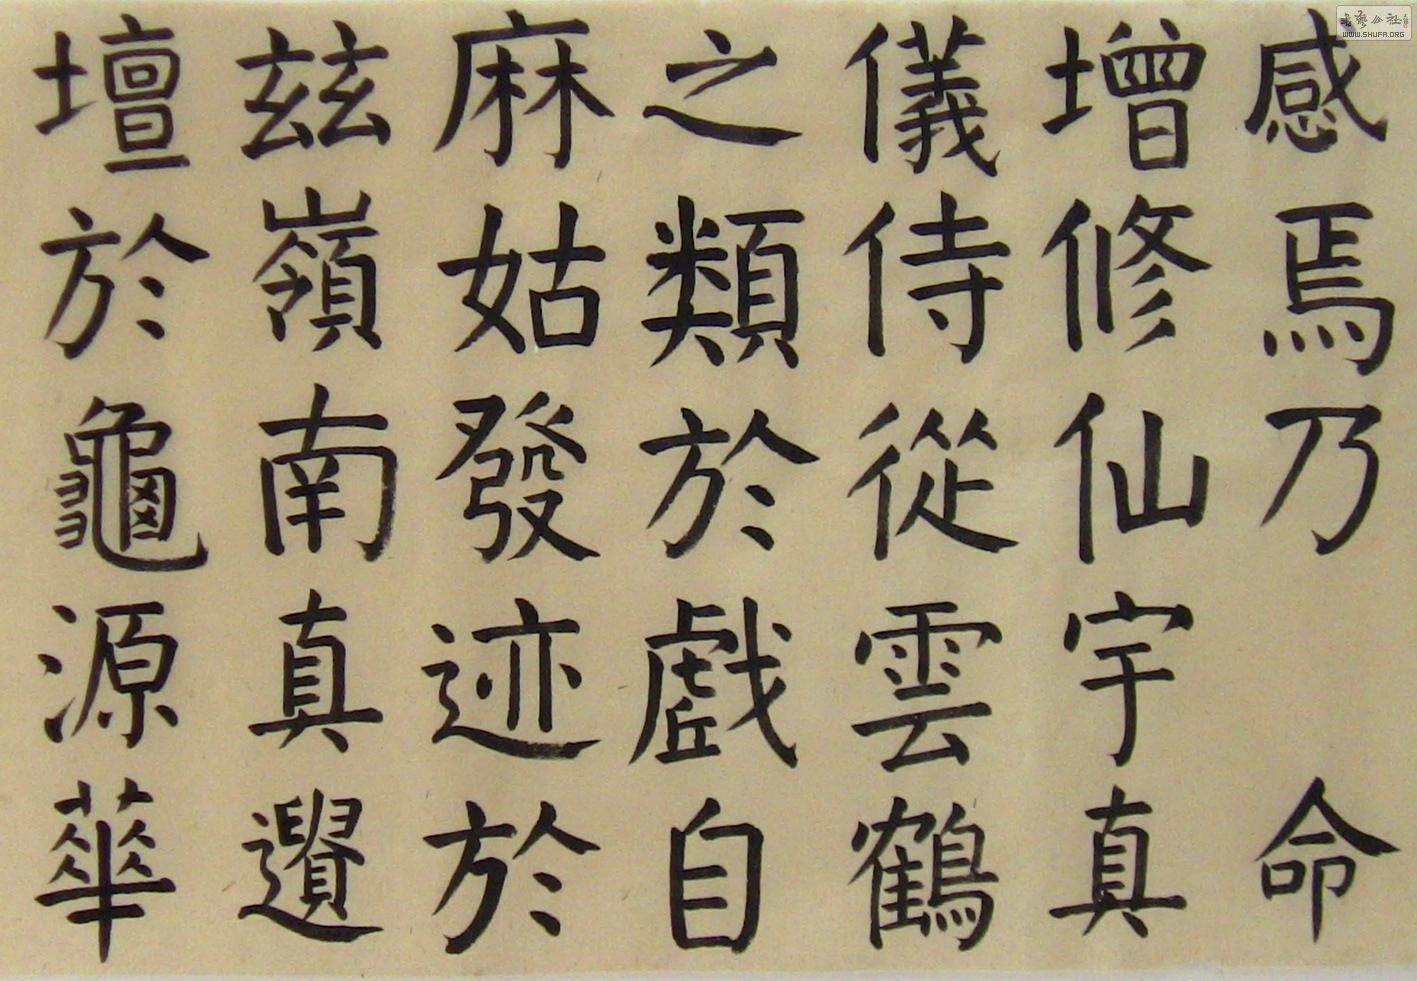 感焉乃命
增修仙宇真
儀侍從雲鶴
之類於戲自
麻姑發迹於
玆嶺南真遺
壇於龜源華
WWW.SHUFA.ORG